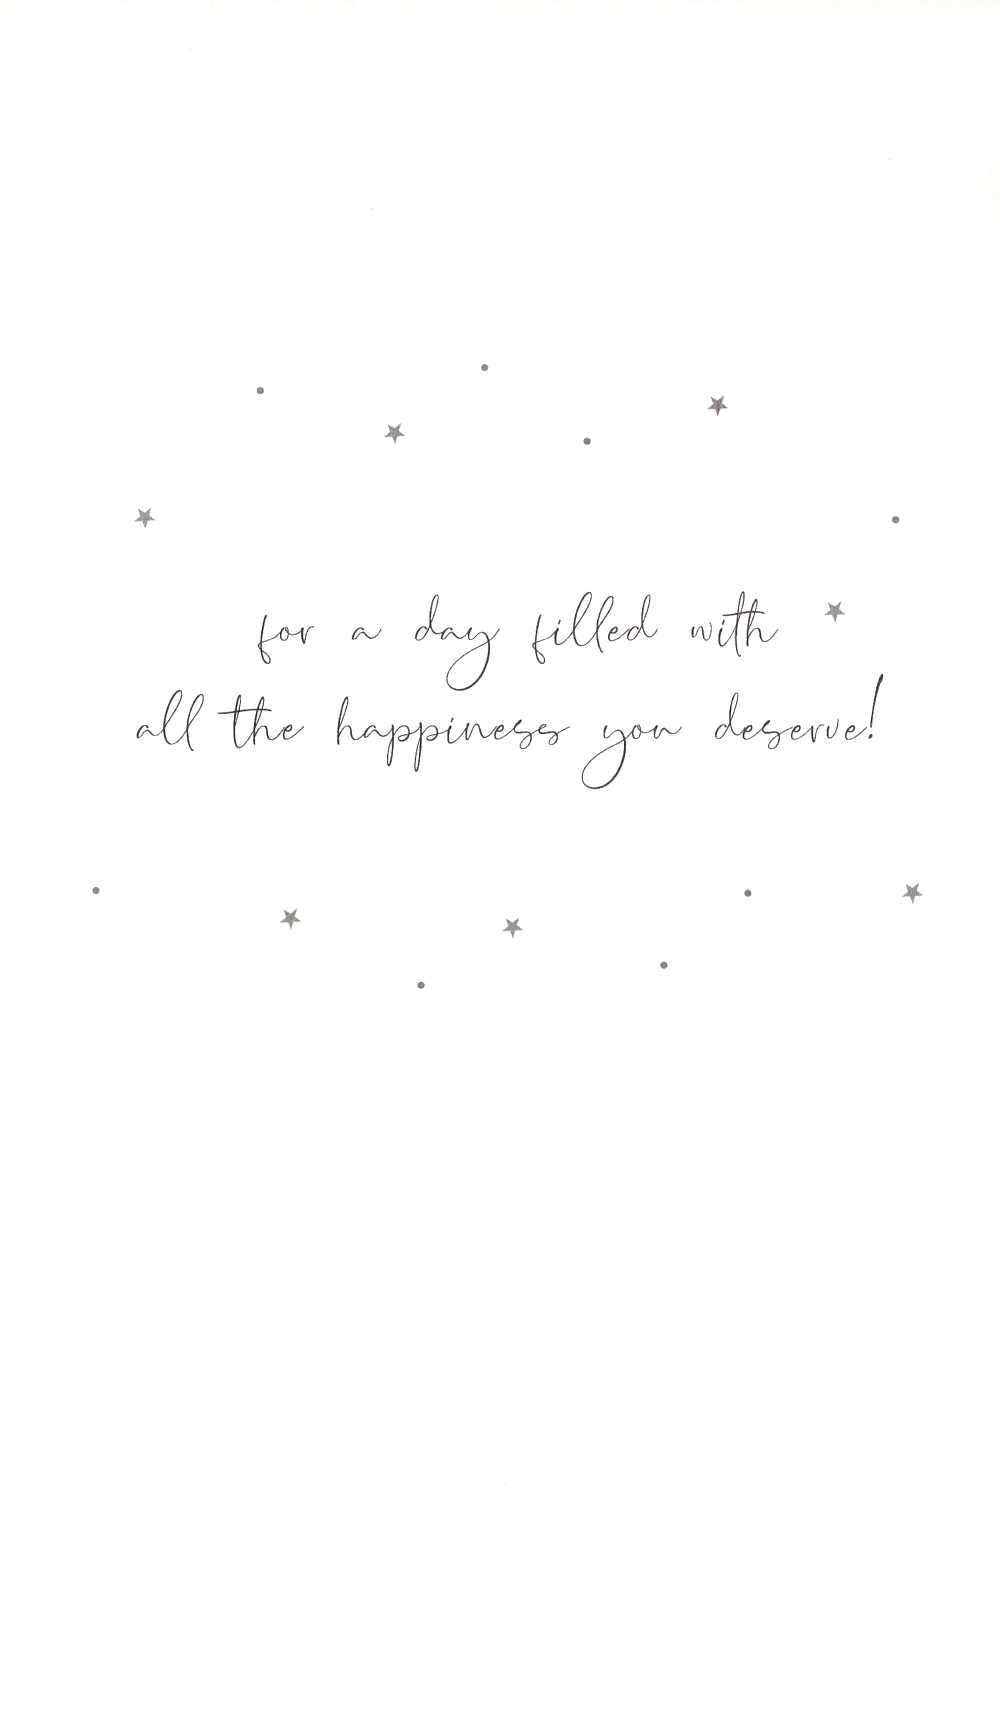 for a day filled with
all the happiness you deserve!